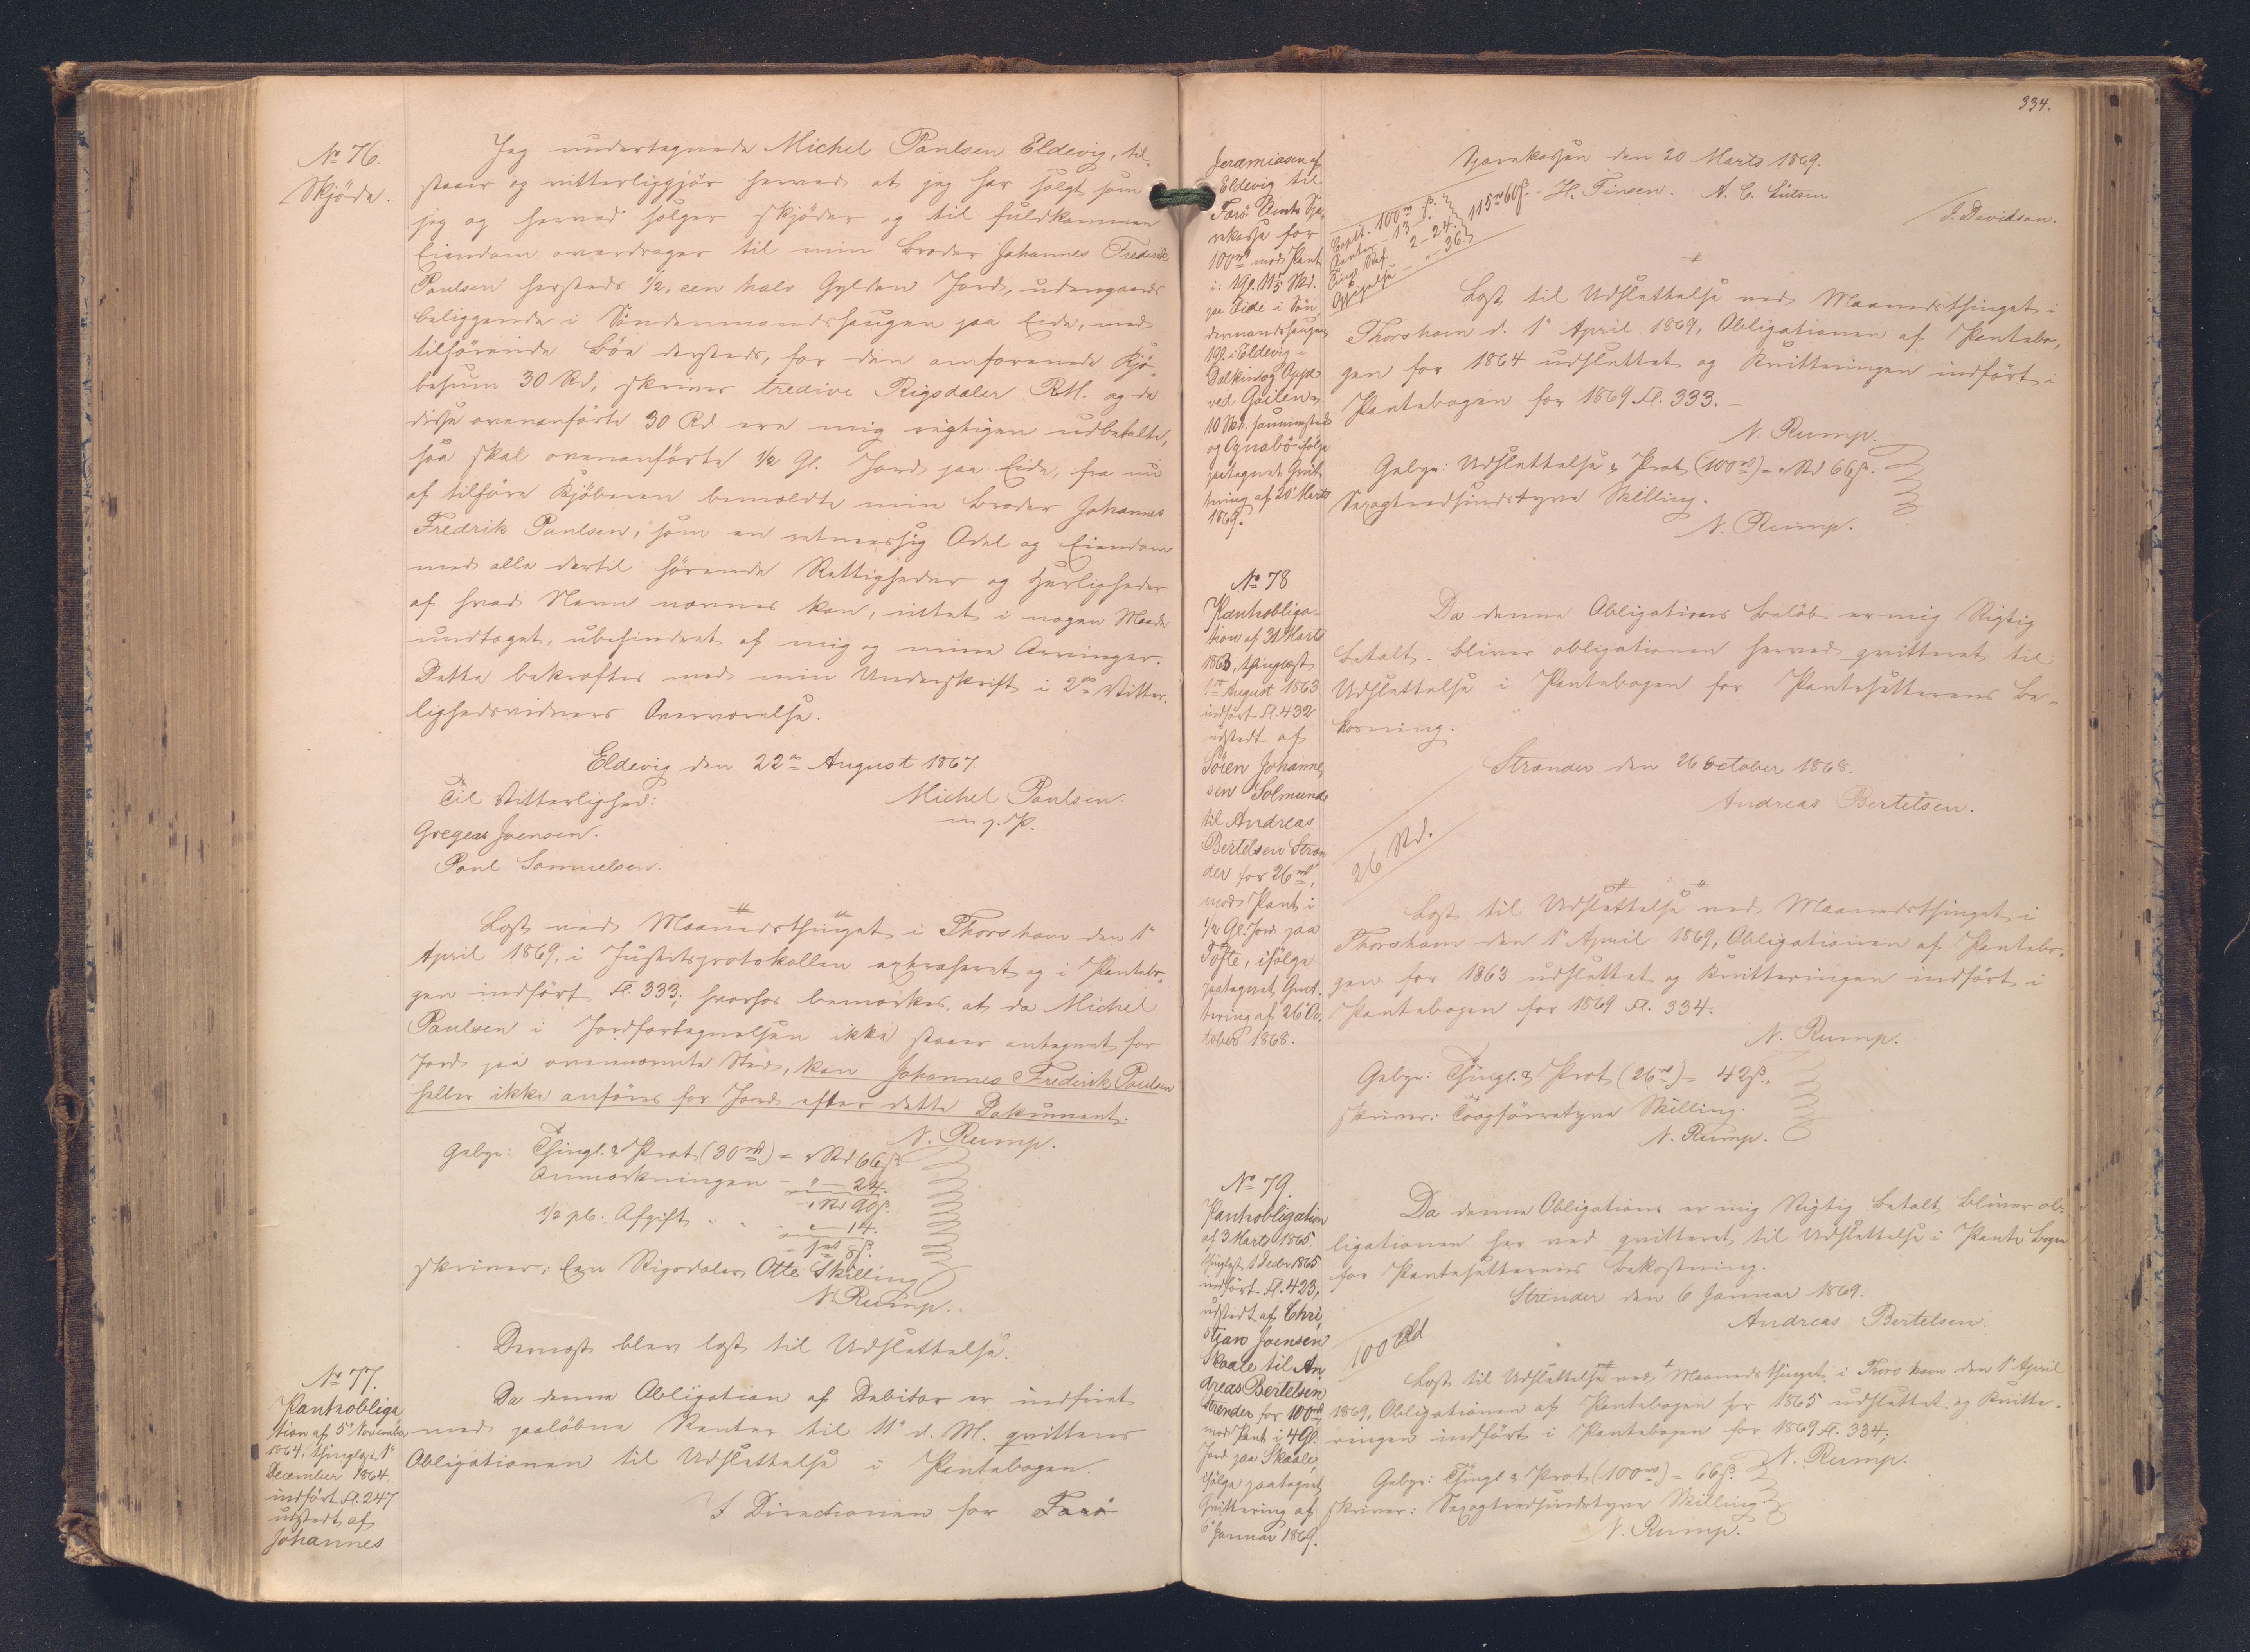 No 76.
Skjöde.
Jeg undertegnede Michel Paulsen Eldevig, til-
staaer og vitterliggjör herved at jeg har solgt som
jeg og herved sælger skjöder og til fuldkommen
Eiendom overdrager til min Broder Johannes Frederik
Paulsen hersteds 1/2, een halv Gylden Jord, udengaards
beliggende i Söndenmandshaugen paa Eide, med
tilhörende Böe dersteds, for den omforenede Kjö-
besum 30 Rd, skriver tredive Rigsdaler RM. og da
disse ovenanförte 30 Rd ere mig rigtigen udbetalte,
saa skal ovenanförte 1/2 Gl. Jord paa Eide, fra nu
af tilhöre Kjöberen bemeldte min Broder Johannes
Fredrik Paulsen, som en retmæssig Odel og Eiendom
med alle dertil hörende Rettigheder og Herligheder
af hvad Navn nævnes kan, intet i nogen Maade
undtaget, ubehindret af mig og mine Arvinger.
Dette bekræftes med min Underskrift i 2de Vitter-
lighedsvidners Overværelse.
Eldevig den 22de August 1867.
Til Vitterlighed:
Michel Paulsen.
m. f. P.
Gregers Joensen.
Poul Samuelsen.
Læst ved Maanedsthinget i Thorshavn den 1ste
April 1869, i Justitsprotokollen extraheret og i Pantebo-
gen indfört Fl. 333; hvorhos bemærkes, at da Michel
Paulsen i Jordfortegnelsen ikke staaer antegnet for
Jord paa ovennævnte Sted, kan Johannes Frederik Paulsen
heller ikke anföres for Jord efter dette Dokument.
N. Rump.
Gebyr: Thingl. & Prot (30rd) = " Rd 66 ß.
Anmærkningen - " - 24.
- " Rd 90 ß.
1/2 pC. Afgift - " - 14.
- 1rd 8 ß.
skriver: Een Rigsdaler, Otte Skilling
N. Rump.
Dernæst blev læst til Udslettelse.
No 77.
Pantobliga
tion af 5' November
1864, thinglæst 1'
December 1864,
indfört Fl. 247
udstedt af
Johannes
Da denne Obligation af Debitor er indfriet
med paalöbne Renter til 11' d. M. qvitteres
Obligationen til Udslettelse i Pantebogen.
I Directionen for Færö
334.
Jeremiasen af
Eldevig til
Færö Amts Spa-
rekasse for
100rd mod Pant
i: 1 Gl. 11 Skd.
paa Eide i Sön-
denmandshaugen
1 Gl. i Eldevig i
ved
10 Skd. sammesteds
og ifölge
paategnet Qvit-
tering af 20' Marts
1869.
Sparekassen den 20 Marts 1869.
H. Finsen. A. C. Lützen
J. Davidsen.
Capit. 100rd " ß.
Renter - 13
Tingl. 2 - 24.
" - 36.
115rd 60 ß.
Læst til Udslettelse ved Maanedsthinget i
Thorshavn d. 1' April 1869, Obligationen af Pantebo-
gen for 1864 udslettet og Kvitteringen indfört i
Pantebogen for 1869 Fl. 333. -
N. Rump.
Gebyr: Udslettelse & Prot (100rd) = " Rd 66 ß.
Sexogtredsindstyve Skilling.
N. Rump.
No 78
Pantobliga-
tion af 31' Marts
1863, thinglæst
1ste August 1863
indfört Fl. 432
udstedt af
Sören Johanne-
sen Solmunde
til Andreas
Bertelsen Stræn
der for 26rd,
mod Pant i
1/2 Gl. Jord paa
Tofte, ifölge
paategnet Qvit-
tering af 26' Oc-
tober 1868.
Da denne Obligations Belöb er mig Rigtig
betalt. bliver obligationen herved qvitteret til
Udslettelse i Pantebogen for Pantesætterens Be-
kosning.
Strænder den 26 October 1868.
Andreas Bertelsen.
26 Rd.
Læst til Udslettelse ved Maanedsthinget i
Thorshavn den 1' April 1869, Obligationen af Pantebo-
gen for 1863 udslettet og Kvitteringen indfört i
Pantebogen for 1869 Fl. 334.
N. Rump.
Gebyr: Thingl. & Prot (26rd) = 42 ß.
skriver: Toogfirretyve Skilling.
N. Rump.
No 79.
Pantobligation
af 3 Marts 1865,
thinglæst 1 Decbr 1865
indfört Fl. 423,
udstedt af Chri-
stjan Joensen
Skaale til An-
dreas Bertelsen
Strænder for 100rd
mod Pant i 4 Gl.
Jord paa Skaale,
ifölge paategnet
Qvittering af
6' Januar 1869.
Da denne Obligations er mig Rigtig betalt bliver ob-
ligationen her ved qvitteret til Udslettelse i Pante Bogen
for Pantesætterens bekostning.
Strender den 6 Januar 1869.
Andreas Bertelsen.
100 Rd
Læst til Udslettelse ved Maanedsthinget i Thorshavn den 1' April
1869, Obligationen af Pantebogen for 1865 udslettet og Kvitte-
ringen indfört i Pantebogen for 1869 Fl. 334;
N. Rump.
Gebyr: Thingl & Prot (100rd) = 66 ß.
skriver: Sexogtredsindstyve Skilling.
N. Rump.